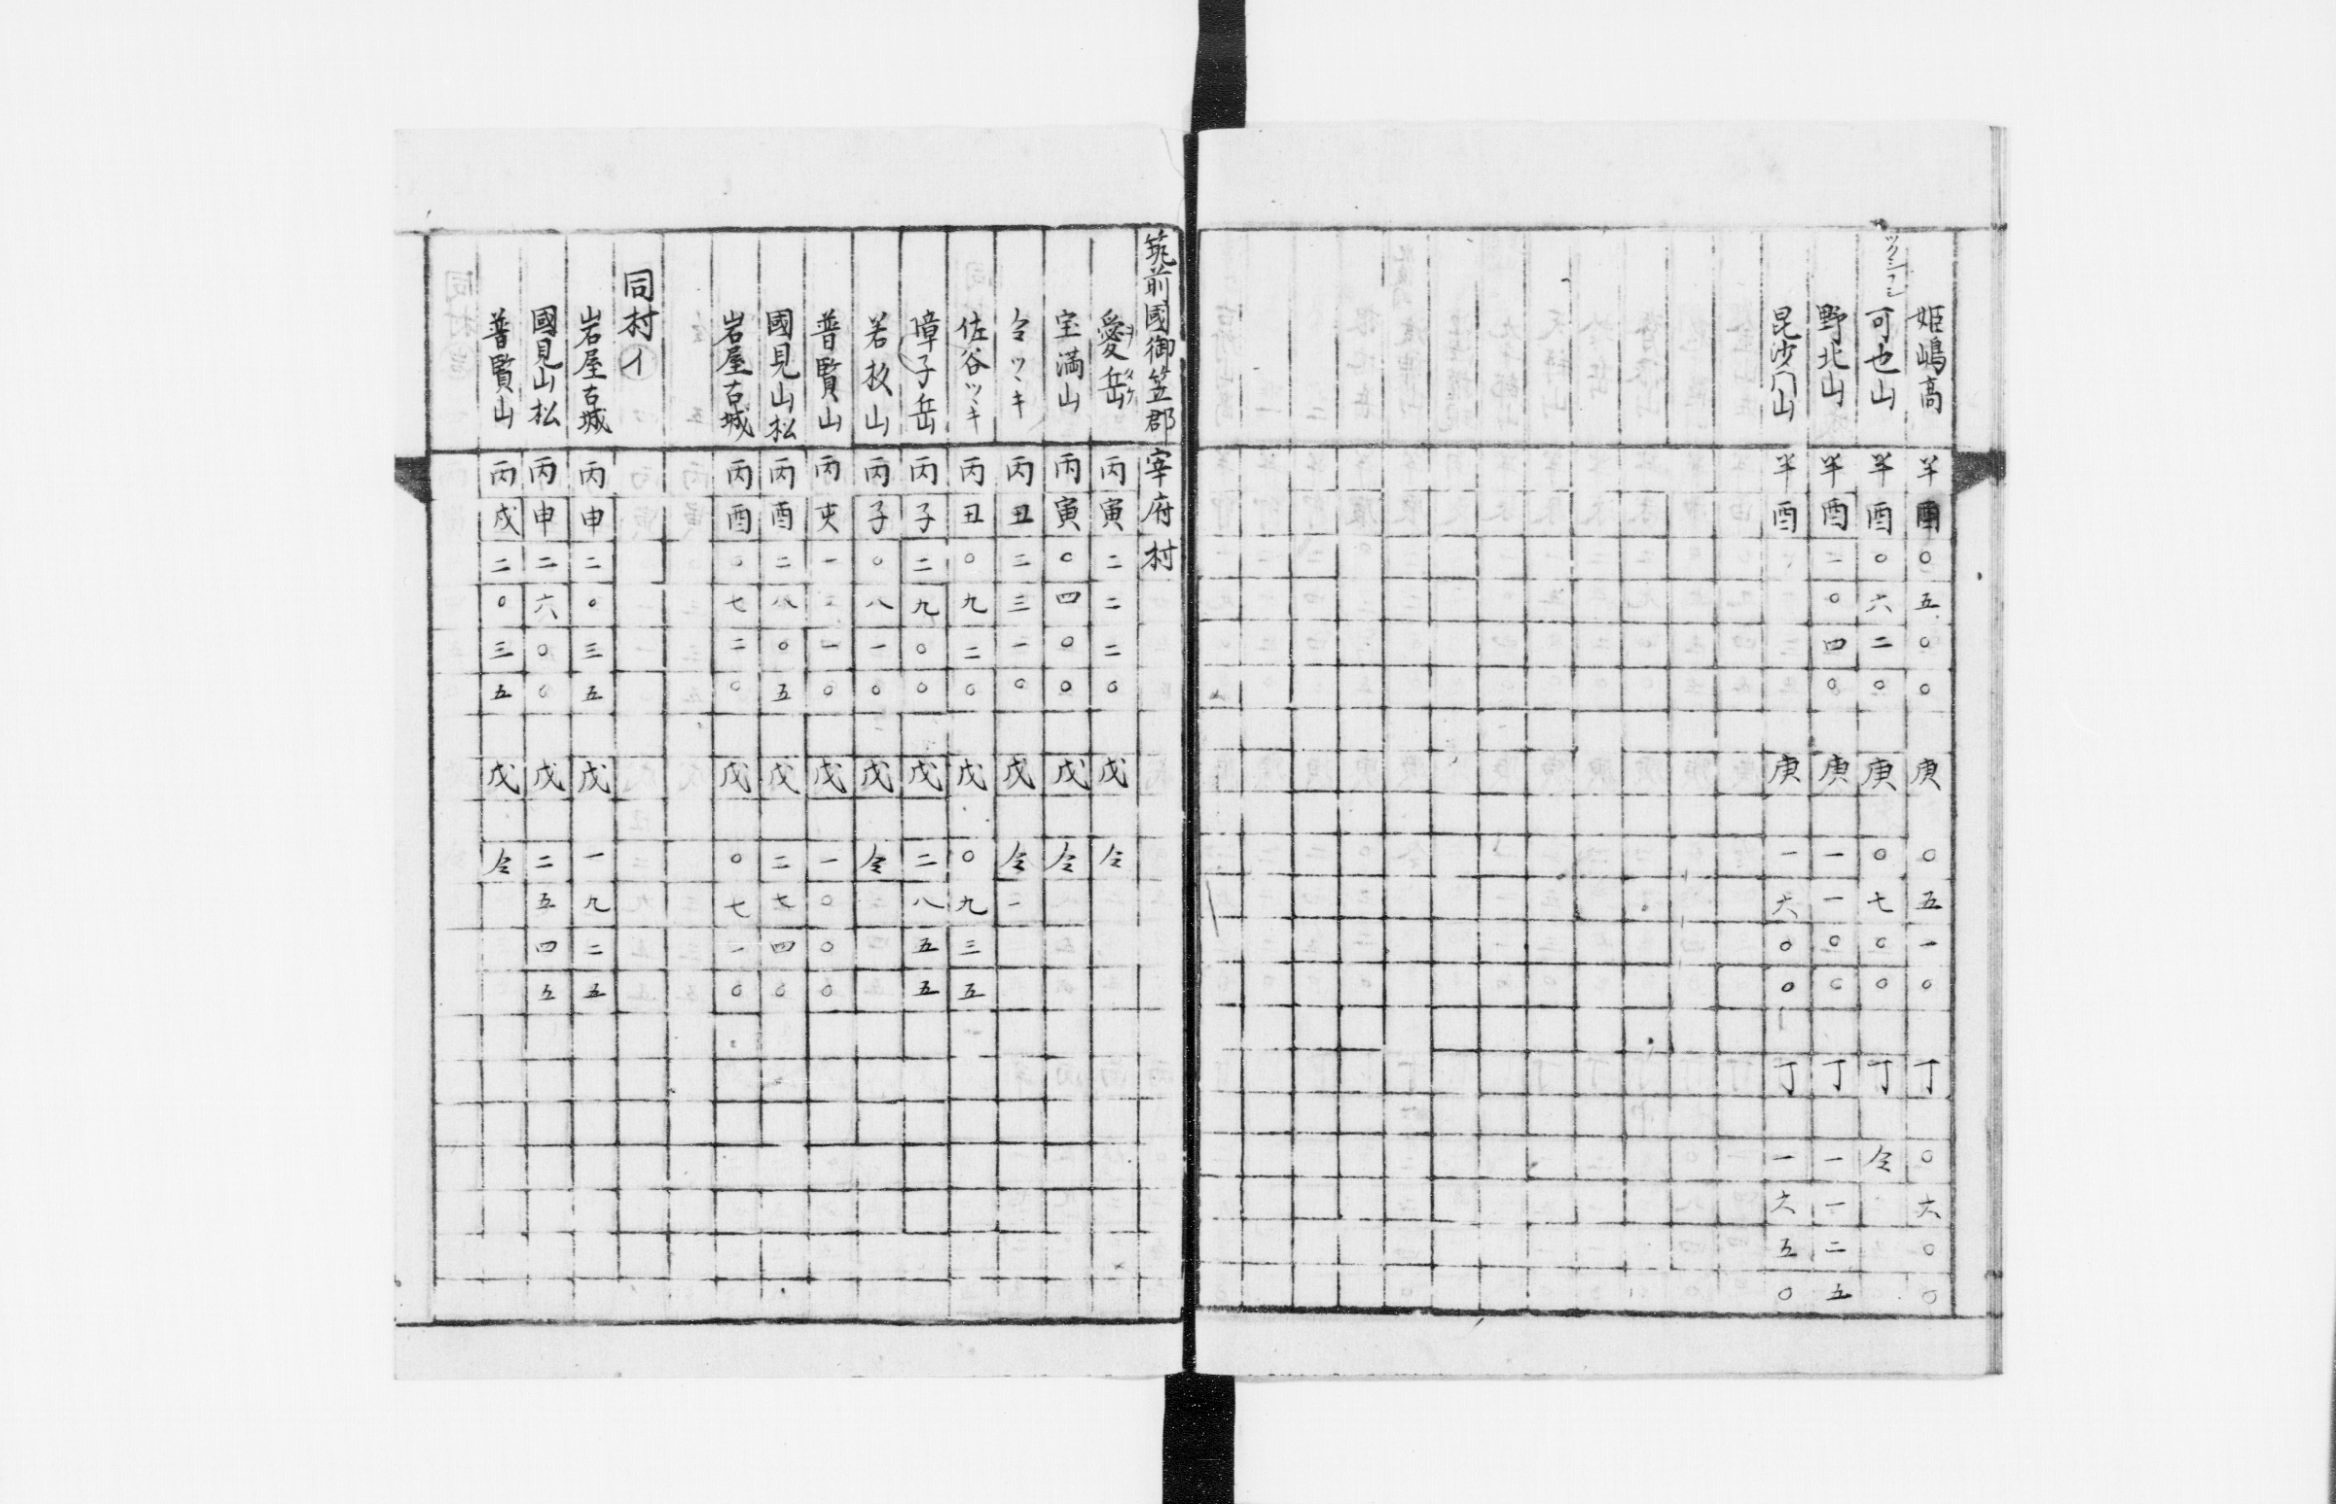 姫嶋高 半 酉 〇五〇〇 庚 〇五一〇 丁 〇六〇〇
可也山 半 酉 〇六二〇 庚 〇七〇〇 丁 仝
野北山 半 酉 二〇四〇 庚 一一〇〇 丁 一一二五
昆沙门山 半 酉 庚 一六〇〇 丁 一六五〇
筑前國御笠郡宰府村
愛岳 丙 寅 二二二〇 戊 仝
宝満山 丙 寅 〇四〇〇 戊 仝
仝ツヽキ 丙 丑 二三一〇 戊 仝
佐谷ツヽキ 丙 丑 〇九二〇 戊 〇九三五
障子岳 丙 子 二九〇〇 戊 二八五五
若杦山 丙 子 〇八一〇 戊 仝
普賢山 丙 一 〇 戊 一〇〇〇
國見山松 丙 酉 二八〇五 戊 二七四〇
岩屋古城 丙 酉 〇七二〇 戊 〇七一〇
同村イ
岩屋古城 丙 申 二〇三五 戊 一九二五
國見山松 丙 申 二六〇〇 戊 二五四五
普賢山 丙 戌 二〇三五 戊 仝